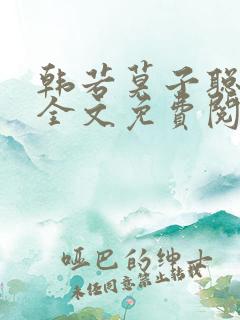 韩若莫子聪
全文免费阅
哑巴的绅士
未经同意禁止转载